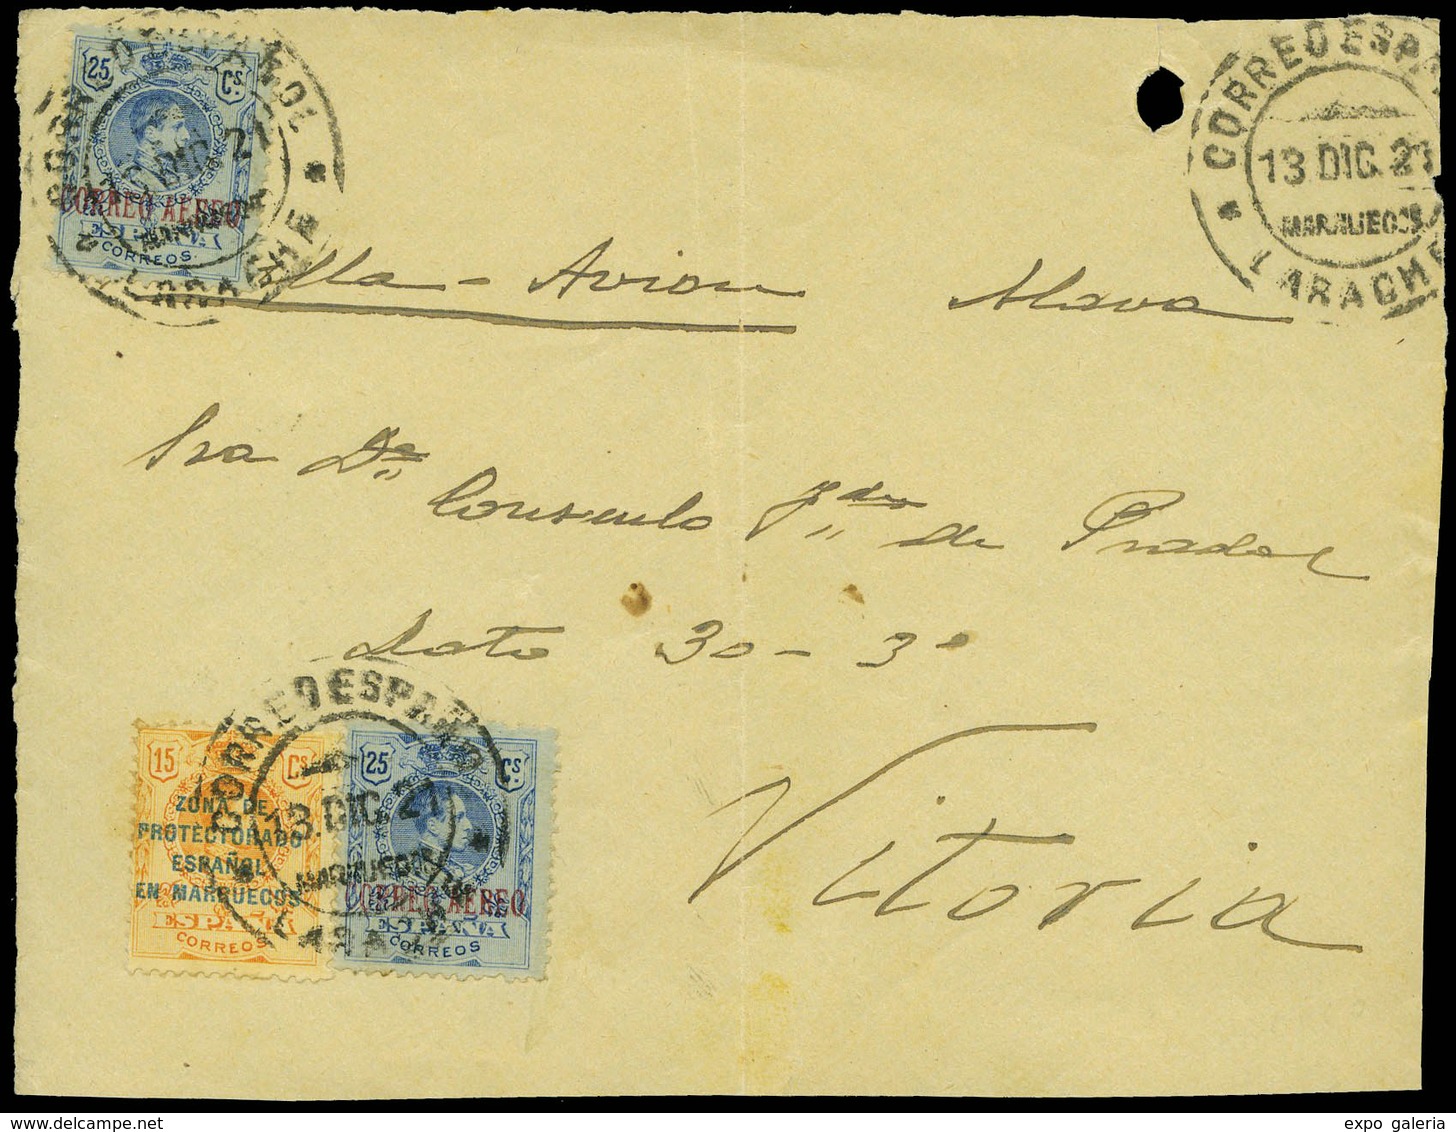 25 Cs
CORREO ESPAÑOL
DIC 21
CORREO AEREO
ESPAÑA
CORREOS
LARACHE
CORREO ESPA
13 DIC. 21
MARRUECOS
LARACHE
lla - Avion Alava
Sra Da
Consuelo de Prados
Dato 30 - 3º
Vitoria
CORREO ESPAÑOL
13. DIC. 21
MARRUECOS
LARA
15 Cs
ZONA DE
PROTECTORADO
ESPAÑOL
EN MARRUECOS
ESPAÑA
CORREOS
25 Cs.
CORREO AEREO
ESPAÑA
CORREOS
expo galeria